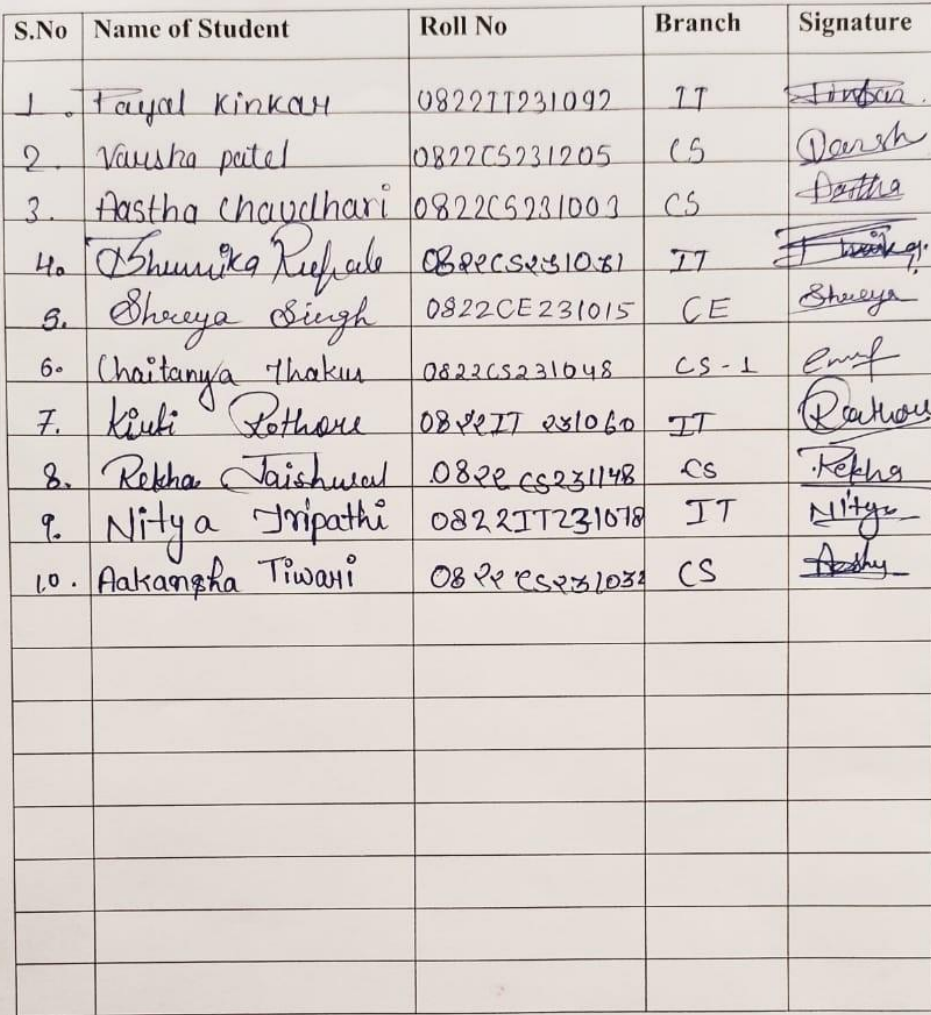 S.No Name of Student Roll No Branch Signature
1. Payal Kinkar 0822IT231092 IT
2. Varsha patel 0822CS231205 CS Varsh
3. Aastha Chaudhari 0822CS231003 CS Aastha
4. Bhumika 0822CS231081 IT
5. Shreya Singh 0822CE231015 CE Shreya
6. Chaitanya Thakur 0822CS231048 CS-1
7. Kirti Rothore 0822IT 231060 IT Rathore
8. Rekha Jaishwal 0822 CS231148 CS Rekha
9. Nitya Tripathi 0822IT231078 IT Nitya
10. Aakangsha Tiwari 0822 CS231032 CS